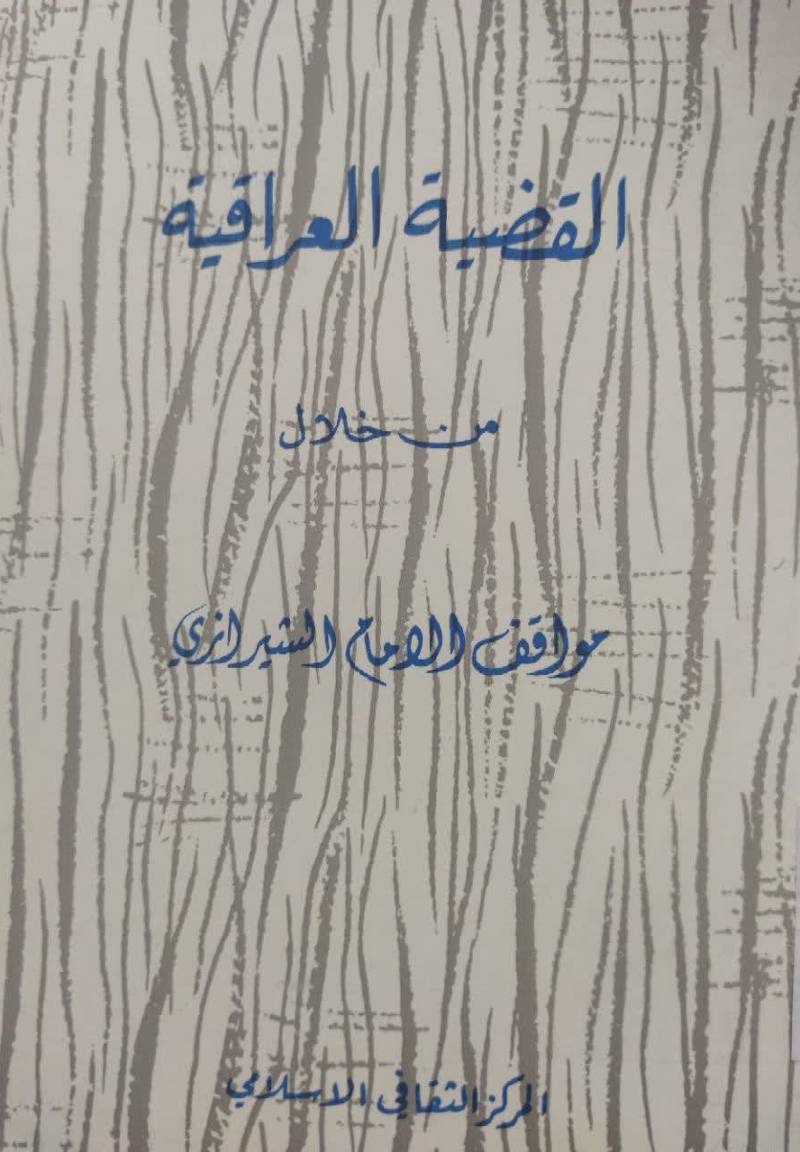 القضية العراقية
من خلال
مواقف الامام الشيرازي
المركز الثقافي الاسلامي